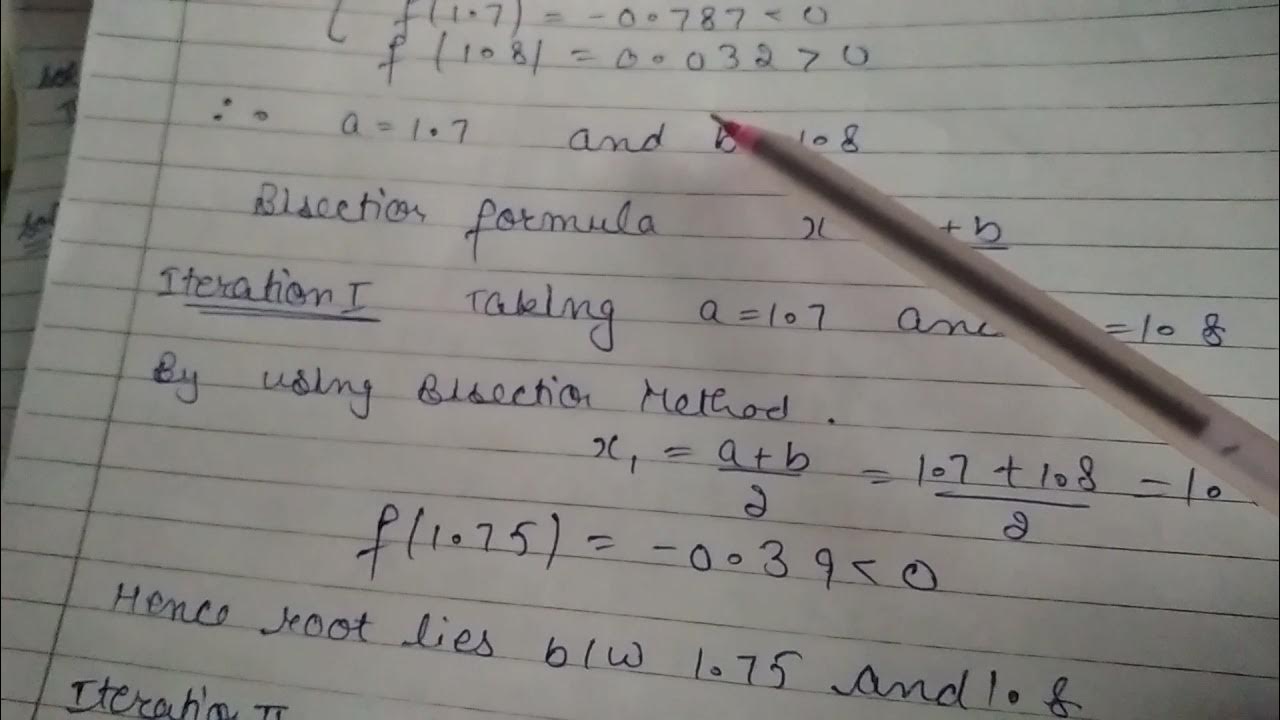 f(1.7) = -0.787 < 0
f(1.8) = 0.032 > 0
∴ a = 1.7 and b 1.8
Bisection formula x + b
Iteration I Taking a = 1.7 = 1.8
By using Bisection Method.
x₁ = a + b / 2 = 1.7 + 1.8 / 2 = 1.
f(1.75) = -0.39 < 0
Hence root lies b/w 1.75 and 1.8
Iteration II